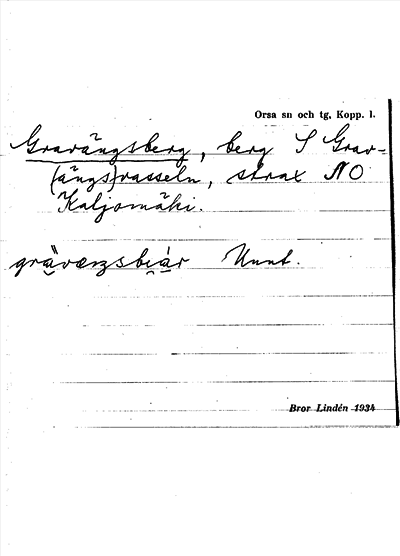 Orsa sn och tg, Kopp. l.
Gravängsberg, berg S Grav-
(ängs)vasseln, strax NO
Kaljomäki.
gräväŋsbiär Unnt.
Bror Lindén 1934